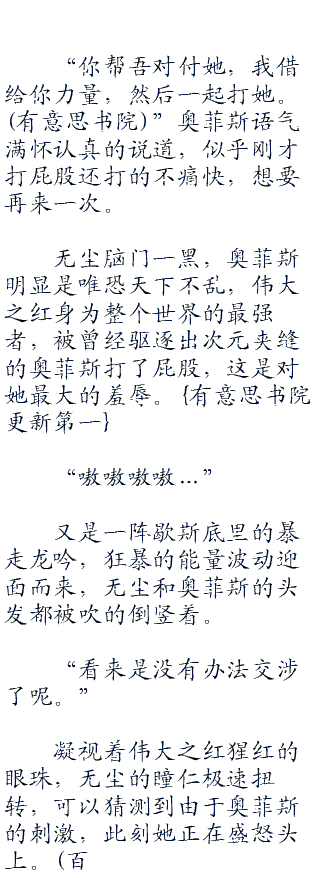 “你帮吾对付她，我借
给你力量，然后一起打她。
(有意思书院)”奥菲斯语气
满怀认真的说道，似乎刚才
打屁股还打的不痛快，想要
再来一次。
无尘脑门一黑，奥菲斯
明显是唯恐天下不乱，伟大
之红身为整个世界的最强
者，被曾经驱逐出次元夹缝
的奥菲斯打了屁股，这是对
她最大的羞辱。{有意思书院
更新第一}
“嗷嗷嗷嗷…”
又是一阵歇斯底里的暴
走龙吟，狂暴的能量波动迎
面而来，无尘和奥菲斯的头
发都被吹的倒竖着。
“看来是没有办法交涉
了呢。”
凝视着伟大之红猩红的
眼珠，无尘的瞳仁极速扭
转，可以猜测到由于奥菲斯
的刺激，此刻她正在盛怒头
上。(百